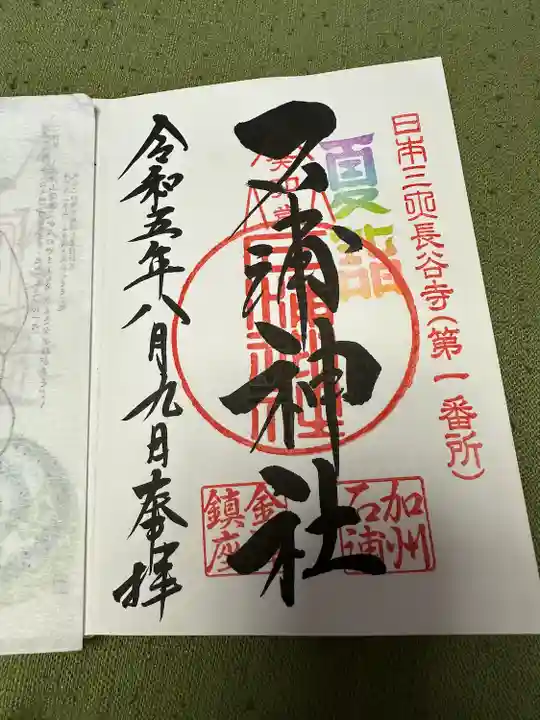 日本三長谷寺(第一番所)
夏詣
石浦神社
加州
石浦
金
鎮座
令和五年八月九日奉拝